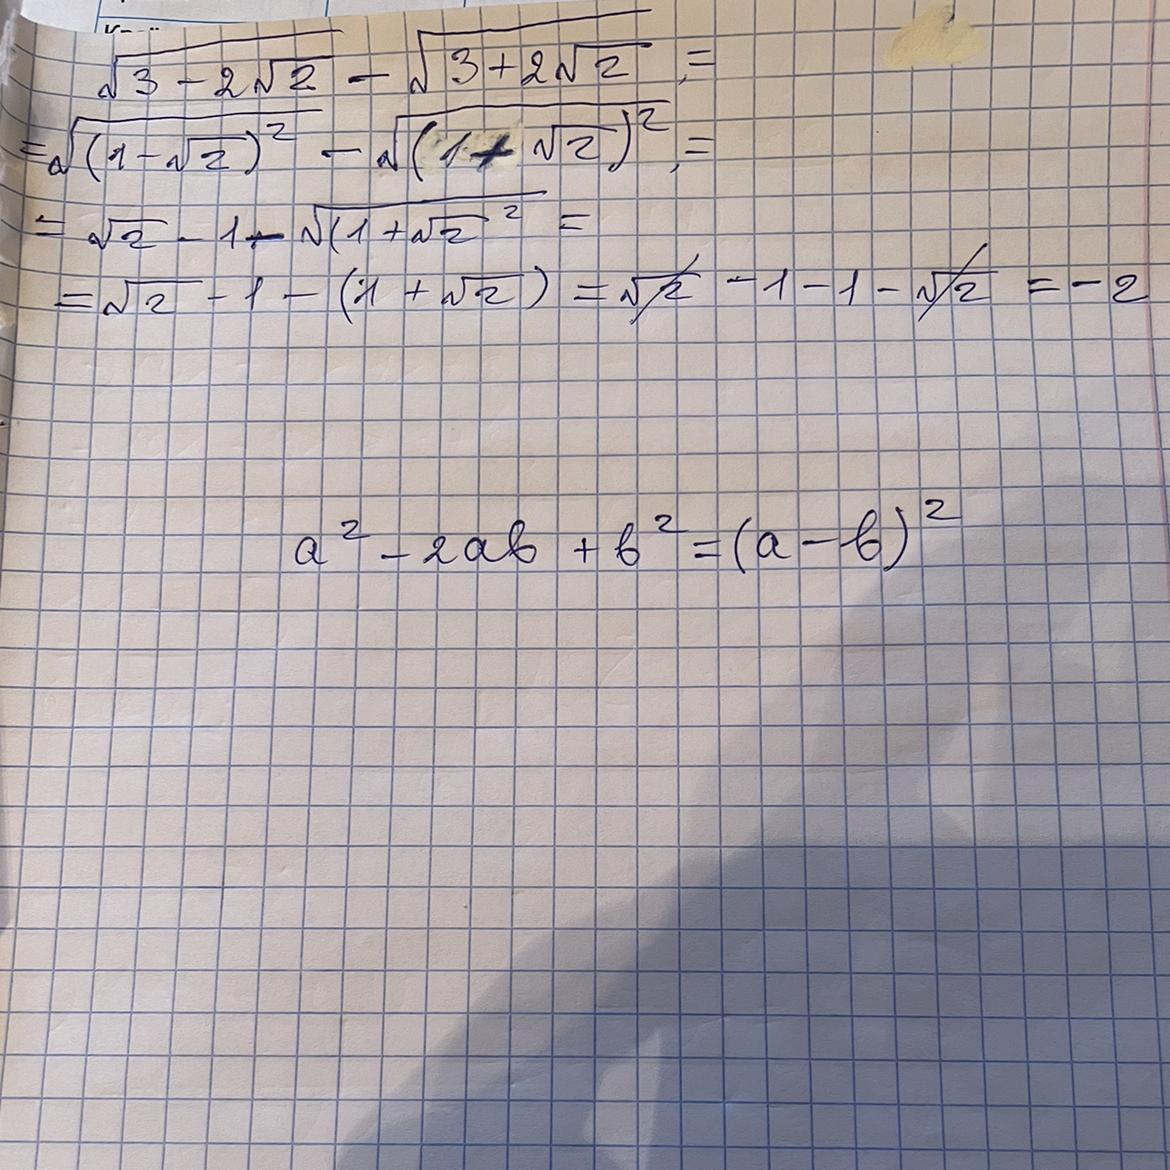 √(3 − 2√2) − √(3 + 2√2) =
= √((1 − √2)²) − √((1 + √2)²) =
= √2 − 1 − √((1 + √2 ²) =
= √2 − 1 − (1 + √2) = √2 − 1 − 1 − √2 = −2
a² − 2ab + b² = (a − b)²